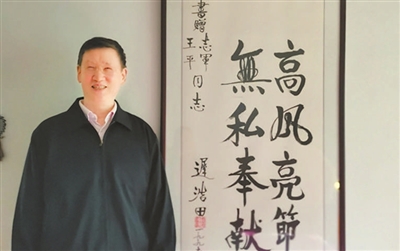 高风亮節
無私奉献
書贈志軍
王平同志
遲浩田